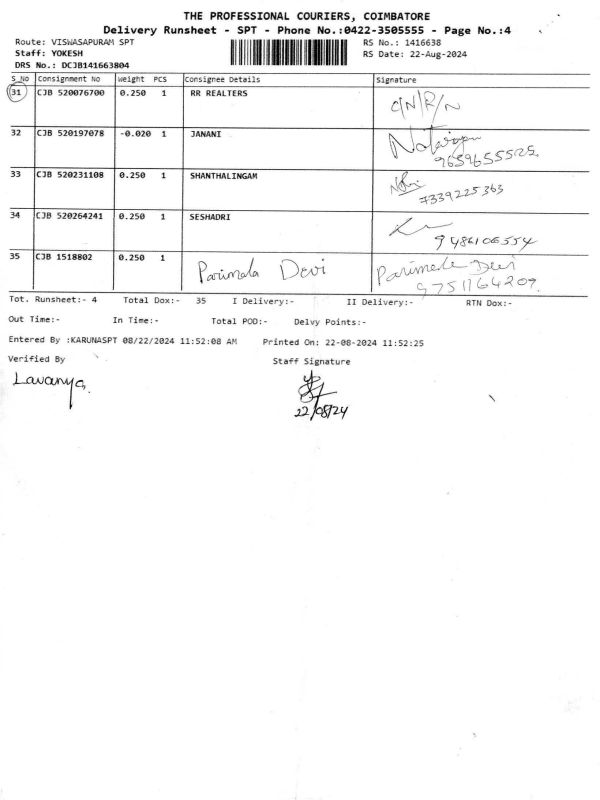 THE PROFESSIONAL COURIERS, COIMBATORE
Delivery Runsheet - SPT - Phone No.:0422-3505555 - Page No.:4
Route: VISWASAPURAM SPT RS No.: 1416638
Staff: YOKESH RS Date: 22-Aug-2024
DRS No.: DCJB141663804
S_No Consignment No Weight PCS Consignee Details Signature
31 CJB 520076700 0.250 1 RR REALTERS C/N/R/N
32 CJB 520197078 -0.020 1 JANANI
9659655525
33 CJB 520231108 0.250 1 SHANTHALINGAM
7339225363
34 CJB 520264241 0.250 1 SESHADRI
9486106554
35 CJB 1518802 0.250 1 Parimala Devi Parimala Devi
9751164209.
Tot. Runsheet:- 4 Total Dox:- 35 I Delivery:- II Delivery:- RTN Dox:-
Out Time:- In Time:- Total POD:- Delvy Points:-
Entered By :KARUNASPT 08/22/2024 11:52:08 AM Printed On: 22-08-2024 11:52:25
Verified By Staff Signature
Lavanya.
22/08/24